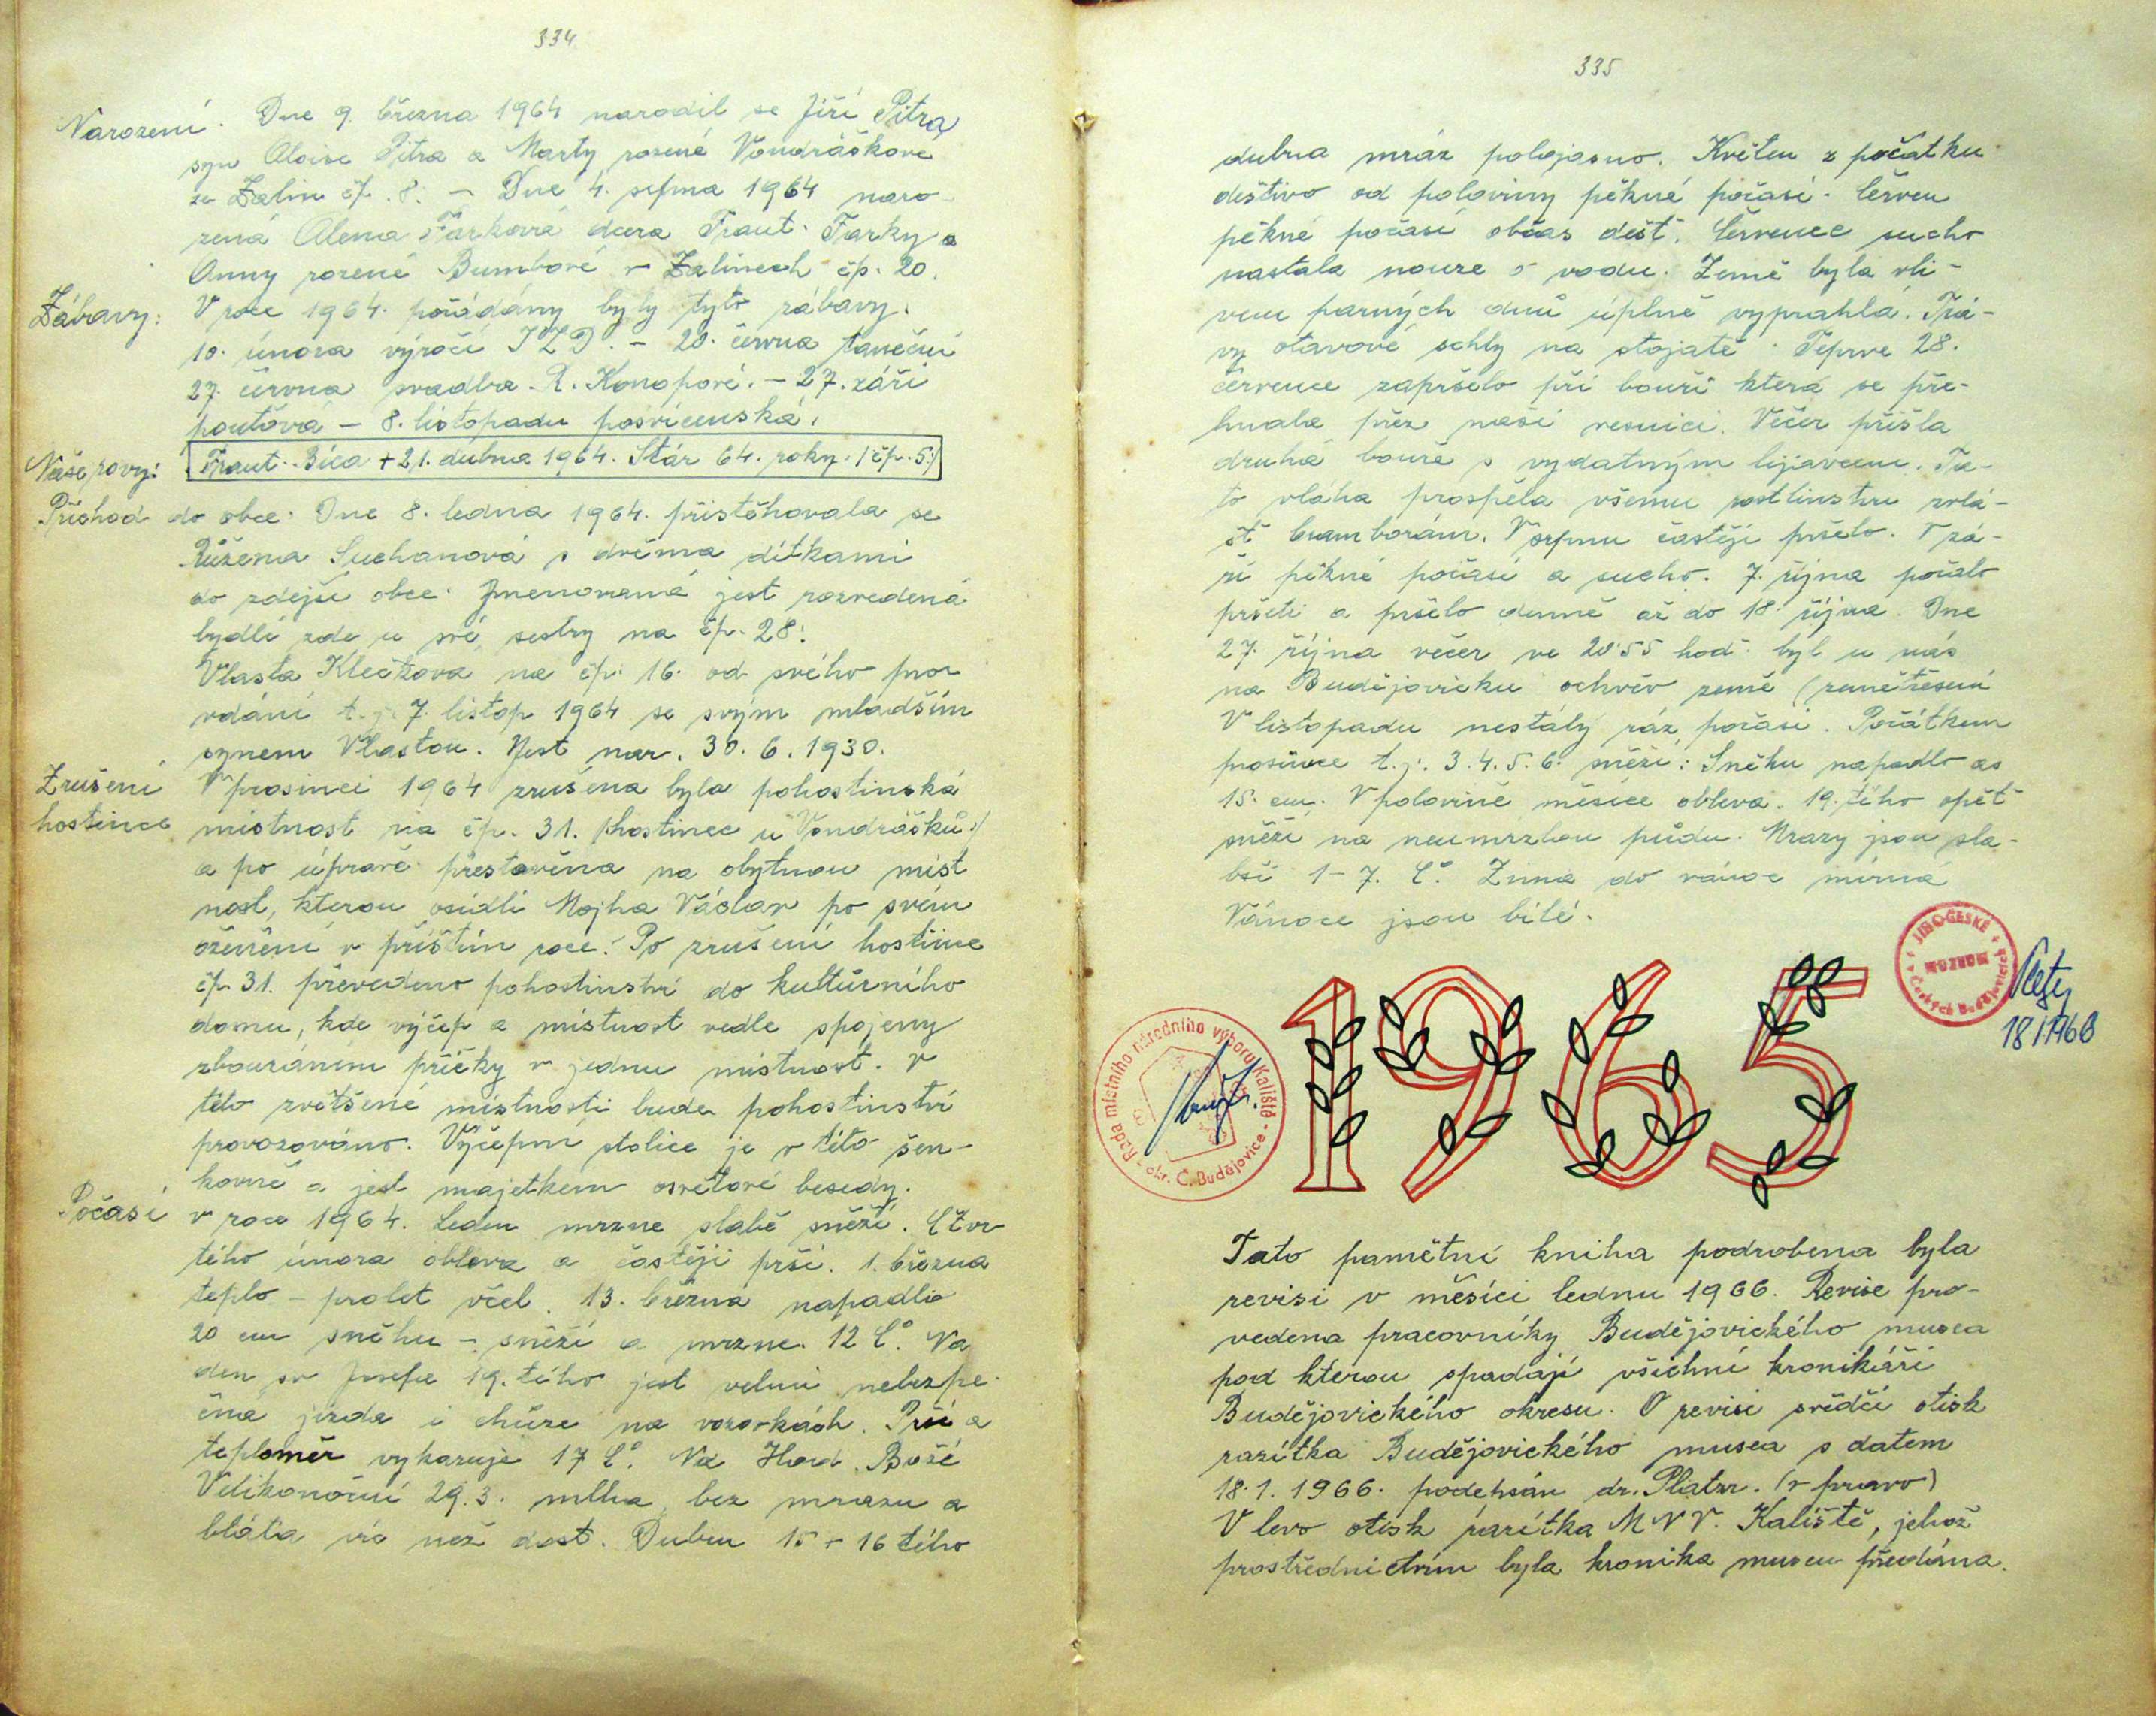 334
Narození. Dne 9. března 1964 narodil se Jiří Pitra
syn Aloise Pitra a Marty rozené Vondráškové
ze Zalin čp. 8. – Dne 4. srpna 1964 naro-
zená Alena Farková dcera Frant. Farky a
Anny rozené Bumbové v Zalinech čp. 20.
Zábavy: V roce 1964. pořádány byly tyto zábavy.
10. února výročí JZD. – 20. června taneční
27. června svadba R. Konopové. – 27. září
pouťová – 8. listopadu posvícenská.
Naše rovy: Frant. Bíca + 21. dubna 1964. Stár 64. roky. /čp. 5/
Příchod do obce. Dne 8. ledna 1964. přistěhovala se
Růžena Suchanová s dvěma dítkami
do zdejší obce. Jmenovaná jest rozvedená
bydlí zde u své sestry na čp. 28.
Vlasta Klečková na čp. 16. od svého pro
vdání t.j. 7. listop 1964 se svým mladším
synem Vlastou. Jest nar. 30. 6. 1930.
Zrušení V prosinci 1964 zrušena byla pohostinská
hostince místnost na čp. 31. /:hostinec u Vondrášků:/
a po úpravě přestavěna na obytnou míst
nost, kterou osídlí Mojha Václav po svém
oženění v příštím roce. Po zrušení hostince
čp. 31. převedeno pohostinství do kultůrního
domu, kde výčep a místnost vedle spojeny
zbouráním příčky v jednu místnost. V
této zvětšené místnosti bude pohostinství
provozováno. Výčepní stolice je v této šen-
kovně a jest majetkem osvětové besedy.
Počasí v roce 1964. Leden mrzne slabě sněží. Čtvr
tého února obleva a častěji prší. 1. března
teplo – prolet včel. 13. března napadlo
20 cm sněhu – sněží a mrzne. 12 C°. Na
den sv Josefa 19. tého jest velmi nebezpe-
čná jízda i chůze na vozovkách. Prší a
teploměr vykazuje 17 C°. Na Hod Boží
Velikonoční 29. 3. mlha, bez mrazu a
bláta víc než dost. Duben 15 + 16 tého
335
dubna mráz polojasno. Květen z počátku
deštivo od poloviny pěkné počasí. Červen
pěkné počasí občas déšť. Červenec sucho
nastala nouze o vodu. Země byla vli-
vem parných dnů úplně vyprahlá. Trá-
vy otavové schly na stojatě. Teprve 28.
července zapršelo při bouři která se pře-
hnala přez naší vesnici. Večer přišla
druhá bouře s vydatným lijavcem. Ta-
to vláha prospěla všemu rostlinstvu zvlá-
šť bramborám. V srpnu častěji pršelo. V zá-
ří pěkné počasí a sucho. 7. října počalo
pršeti a pršelo denně až do 18. října. Dne
27. října večer ve 20.55 hod. byl u nás
na Budějovicku ochvěv země (zemětřesení
V listopadu nestálý ráz počasí. Počátkem
prosince t.j. 3. 4. 5. 6. sněží: Sněhu napadlo as
15. cm. V polovině měsíce obleva. 19. tého opět
sněží na neumrzlou půdu. Mrazy jsou sla-
bší 1 – 7. C°. Zima do vánoc mírná
Vánoce jsou bílé.
JIHOČESKÉ
MUZEUM
v Českých Budějovicích
18/I 1966
Rada místního národního výboru Kaliště
okr. Č. Budějovice
1965
Tato pamětní kniha podrobena byla
revisi v měsíci lednu 1966. Revise pro-
vedena pracovníky Budějovického musea
pod kterou spadají všichni kronikáři
Budějovického okresu. O revisi svědčí otisk
razítka Budějovického musea s datem
18. 1. 1966. podepsán dr. Platzr. (v pravo)
V levo otisk razítka M N V. Kaliště, jehož
prostřednictvím byla kronika museu předána.